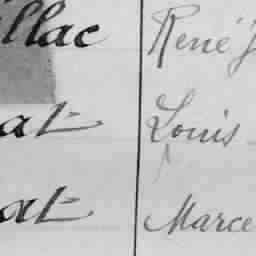 illac René J
at Louis
at Marce